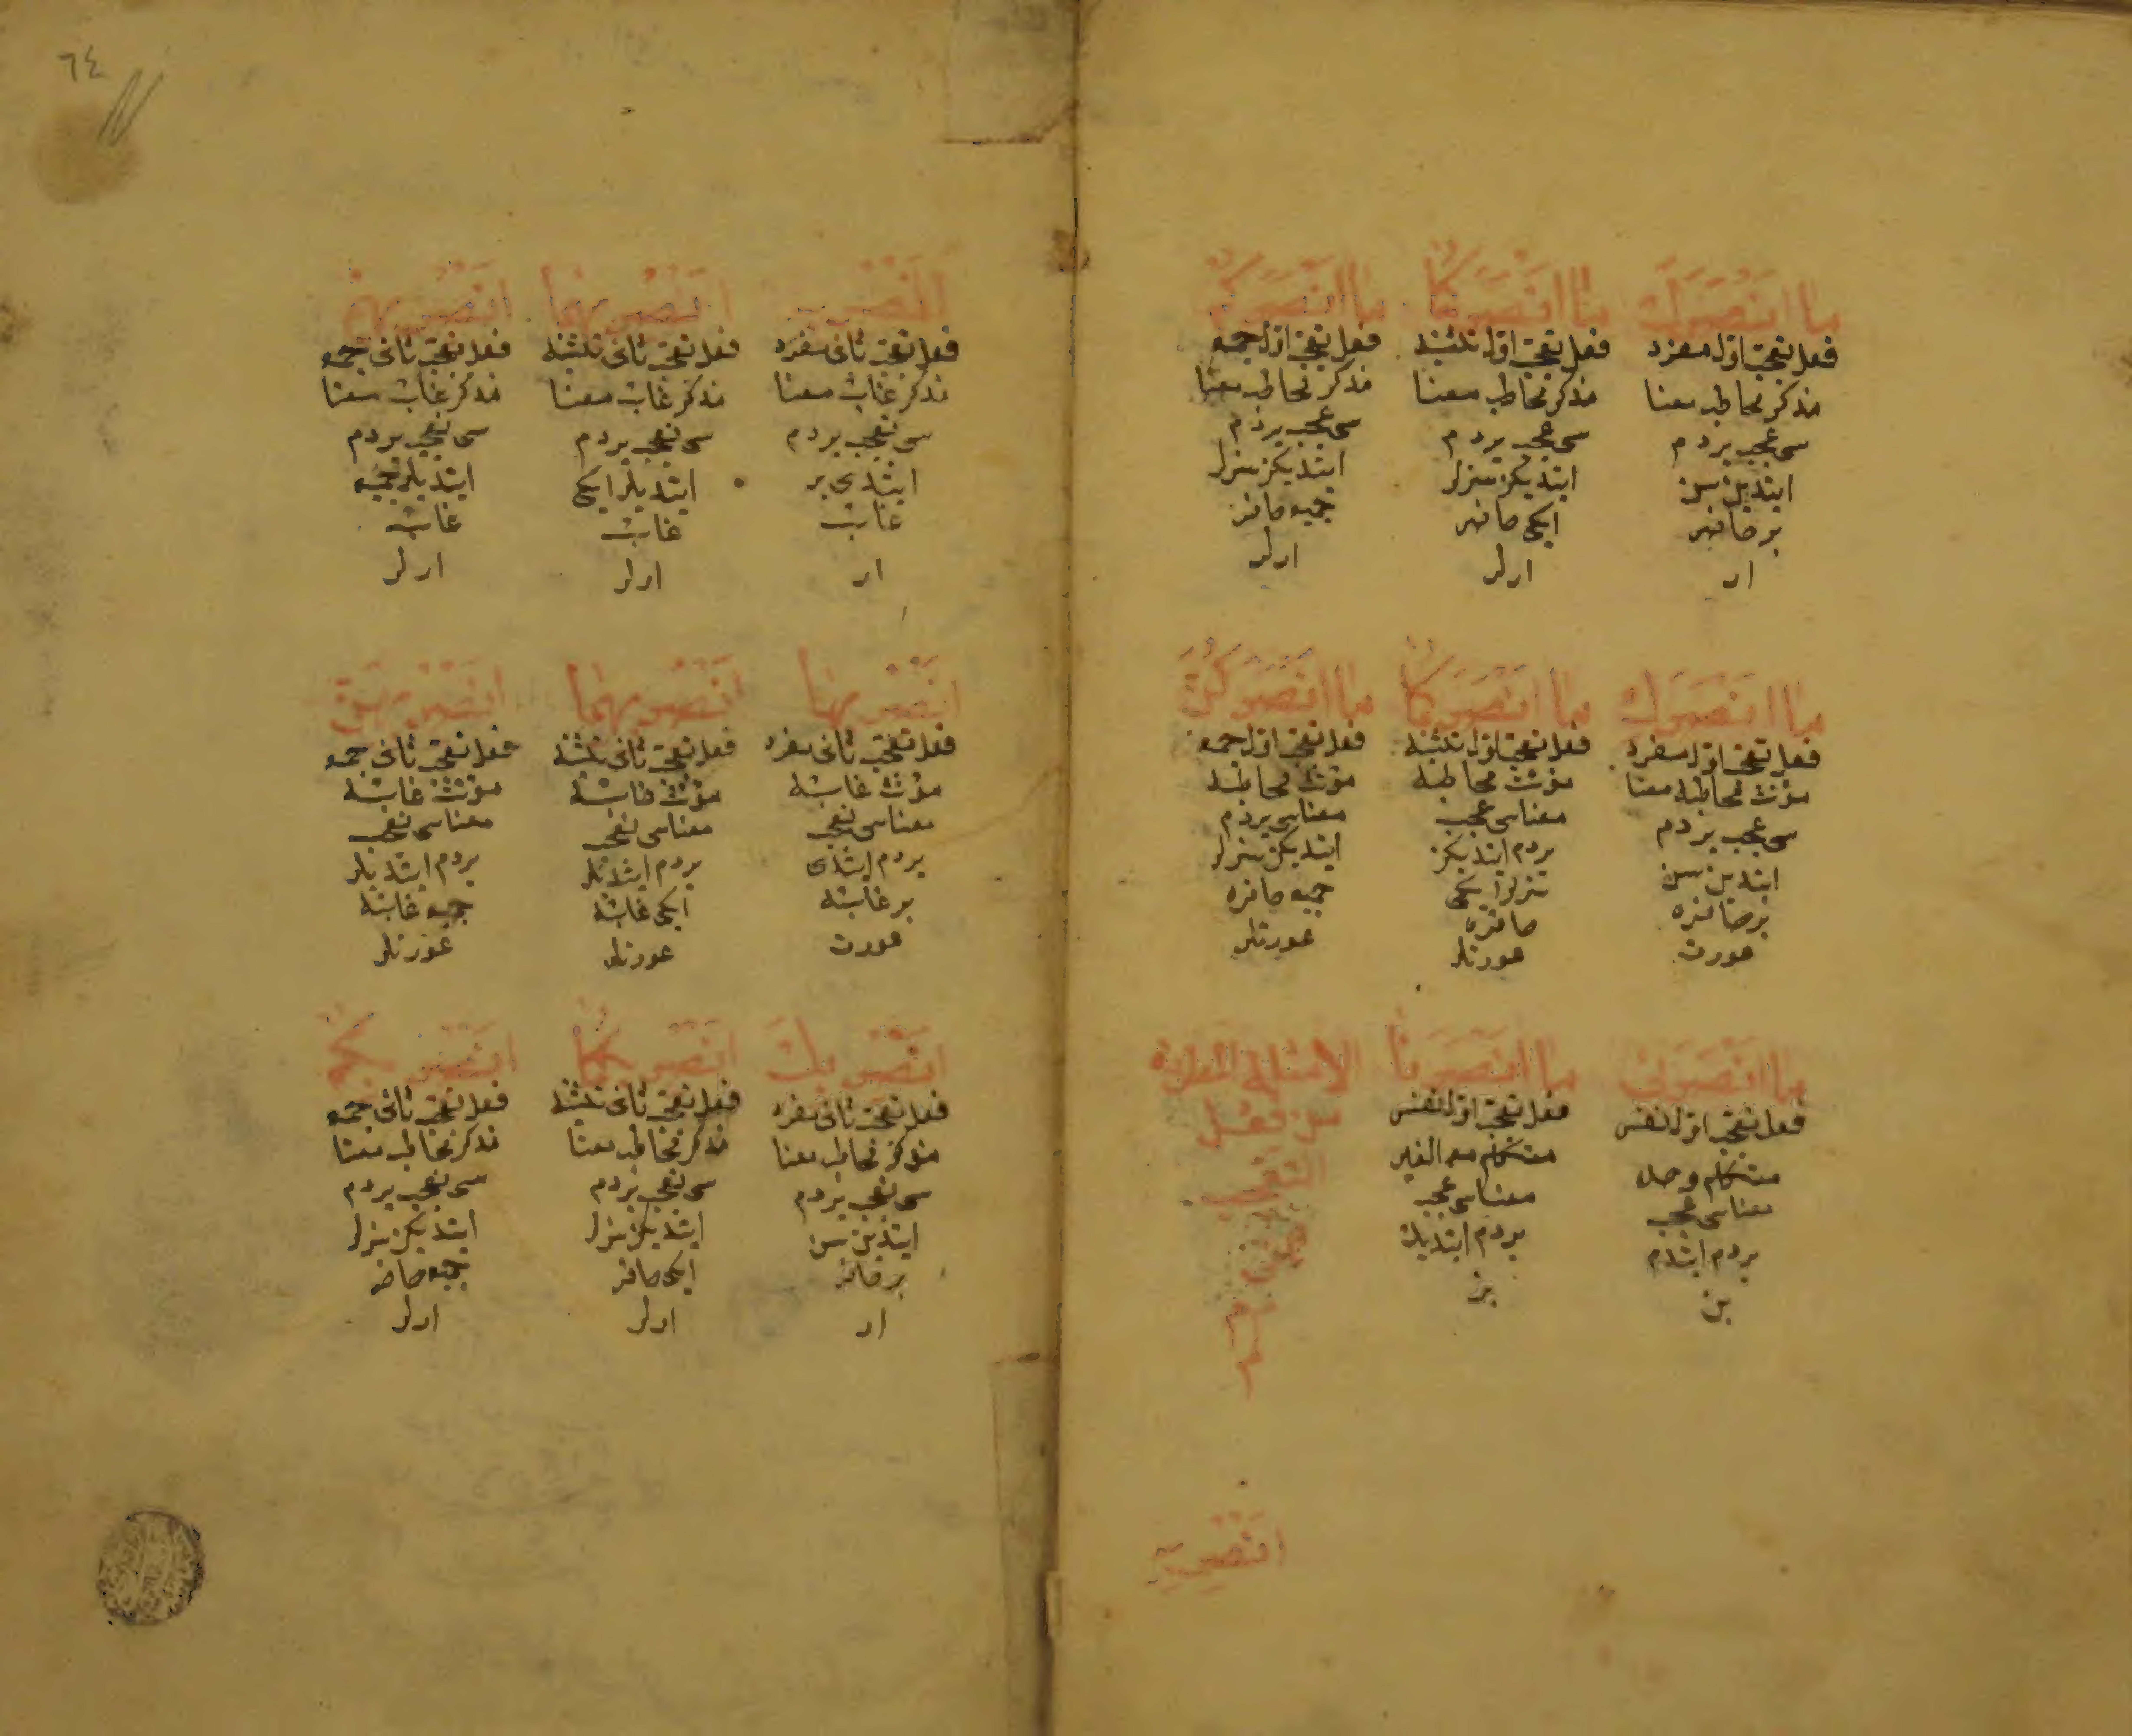 ما انصرك
فعل تعجب اول مفرد
مذكر مخاطب معنا
سى عجب يردم
ايتدين سن
بر حاضر
ار
ما انصركما
فعل تعجب اول تثنيه
مذكر مخاطب معنا
سى عجب يردم
ايتديكز سزلر
ايكى حاضر
ارلر
ما انصركم
فعل تعجب اول جمع
مذكر مخاطب معنا
سى عجب يردم
ايتديكز سزلر
جميع حاضر
ارلر
ما انصرك
فعل تعجب اول مفرد
مؤنث مخاطبه معنا
سى عجب يردم
ايتدين سن
بر حاضره
عورت
ما انصركما
فعل تعجب اول تثنيه
مؤنث مخاطبه
معناسى عجب
يردم ايتديكز
سزلر ايكى
حاضره
عورتلر
ما انصركن
فعل تعجب اول جمع
مؤنث مخاطبه
معناسى يردم
ايتديكز سزلر
جميع حاضره
عورتلر
ما انصرنى
فعل تعجب اول نفس
متكلم وحده
معناسى عجب
يردم ايتدم
بن
ما انصرنا
فعل تعجب اول نفس
متكلم مع الغير
معناسى عجب
يردم ايتديك
بز
الامثلة المطردة
من فعل
التعجب
انصر به
٦٤
انصر به
فعل تعجب ثانى مفرد
مذكر غائب معنا
سى تعجب يردم
ايتدى بر
غائب
ار
انصر بهما
فعل تعجب ثانى تثنيه
مذكر غائب معنا
سى تعجب يردم
ايتديلر ايكى
غائب
ارلر
انصر بهم
فعل تعجب ثانى جمع
مذكر غائب معنا
سى تعجب يردم
ايتديلر جميع
غائب
ارلر
انصر بها
فعل تعجب ثانى مفرد
مؤنث غائبه
معناسى تعجب
يردم ايتدى
بر غائبه
عورت
انصر بهما
فعل تعجب ثانى تثنيه
مؤنث غائبه
معناسى تعجب
يردم ايتديلر
ايكى غائبه
عورتلر
انصر بهن
فعل تعجب ثانى جمع
مؤنث غائبه
معناسى تعجب
يردم ايتديلر
جميع غائبه
عورتلر
انصر بك
فعل تعجب ثانى مفرد
مذكر مخاطب معنا
سى تعجب يردم
ايتدين سن
بر حاضر
ار
انصر بكما
فعل تعجب ثانى تثنيه
مذكر مخاطب معنا
سى تعجب يردم
ايتديكز سزلر
ايكى حاضر
ارلر
انصر بكم
فعل تعجب ثانى جمع
مذكر مخاطب معنا
سى تعجب يردم
ايتديكز سزلر
جميع حاضر
ارلر